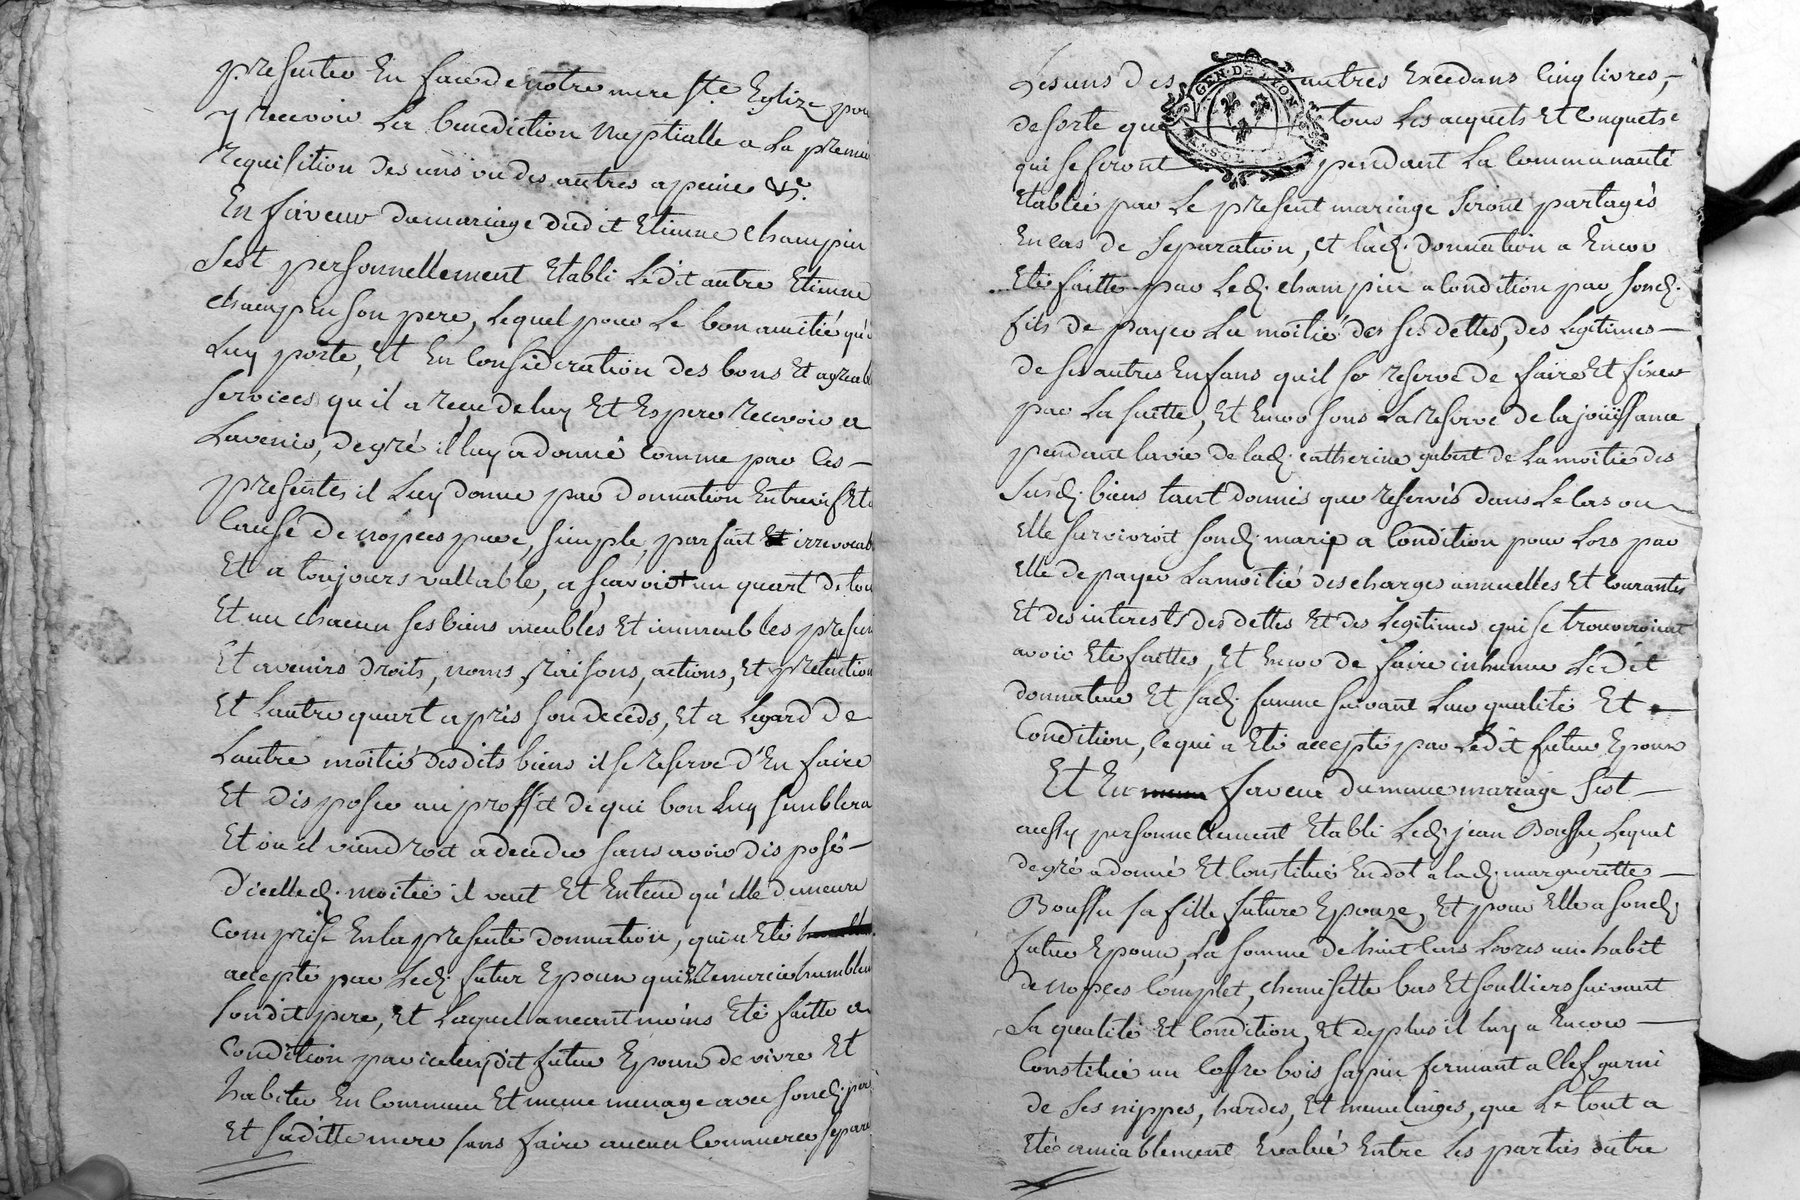 presenter En face de notre mere Ste Eglize pou
y recevoir La benediction Nuptialle a La premie
requisition des uns ou des autres a peine &c.
En faveur du mariage dudit Etienne Champin
sest personnellement Etabli Ledit autre Etienne
champin son pere, Lequel pour Le bon amitié qu'i
Luy porte, Et En Considération des bons Et agreab
services qu'il a reçu de luy Et Espere recevoir a
Lavenir, de gré il luy a donné Comme par Ces
presentes il Luy donne par donnation Entrevifs Et a
Cause de nopces pure, simple, parfait Et irrevocab
Et a toujours vallable, a sçavoir un quart de tou
Et un chacun ses biens meubles Et immeubles presen
Et avenirs droits, noms, raisons, actions, Et pretention
Et Lautre quart apris son deceds, Et a Legard de
Lautre moitié desdits biens il se reserve d'En faire
Et disposer au proffit de qui bon Luy semblera
Et ou il viendroit a deceder sans avoir disposé
d'icelled. moitié il veut Et Entend qu'elle demeure
Comprise En la presente donnation, qui a Eté
accepté par Led. futur Epoux qui En remercie humblem
sondit pere, Et Laquel a neantmoins Eté faitte a
Condition par iceluydit futur Epoux de vivre Et
habiter En Commun Et meme menage avec sond. per
Et saditte mere sans faire aucun Commerce separé
Les uns des autres Excedans Cinq livres,
de sorte que tous Les acquets Et Conquets
qui se feront pendant La Communauté
Etablie par Le present mariage seront partagés
En Cas de separation, Et lad. donnation a Encor
Eté faitte par Led. champin a Condition par sond.
fils de payer La moitié des ses dettes, des Legitimes
de ses autres Enfans qu'il se reserve de faire Et fixer
par La suitte, Et Encor sous La reserve de la joüissance
pendant la vie de lad. catherine gubert de La moitié des
susd. biens tant donnés que reservés dans Le Cas ou
Elle survivroit sond. mary a Condition pour Lors par
Elle de payer La moitié des charges annuelles Et Courantes
Et des interests des dettes Et des Legitimes qui se trouveroient
avoir Eté faittes, Et Encor de faire inhumer Ledit
donnateur Et sad. femme suivant Leur qualité Et
Condition, Ce qui a Eté accepté par Ledit futur Epoux
Et En faveur du meme mariage sest
aussy personnellement Etabli Led. jean Boussu, Lequel
de gré a donné Et Constitué En dot a lad. margueritte
Boussu sa fille future Epouze, Et pour Elle a sond.
futur Epoux, La somme de huit Cens Livres un habit
de nopces Complet, chemisette bas Et soulliers suivant
sa qualité Et Condition, Et deplus il luy a Encor
Constitué un Coffre bois sapin fermant a Clef garni
de ses nippes, hardes, Et menulinges, que Le tout a
Eté amiablement Evalué Entre Les parties outre
GEN. DE LYON